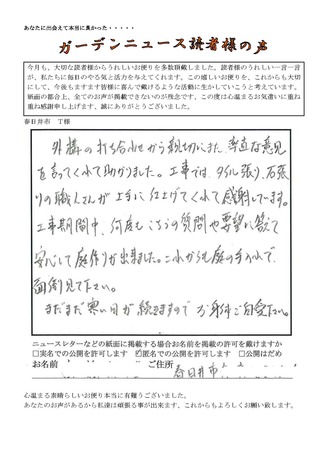 あなたに出会えて本当に良かった・・・・・
ガーデンニュース読者様の声
今月も、大切な読者様からうれしいお便りを多数頂戴しました。読者様のうれしい一言一言
が、私たちに毎日のやる気と活力を与えてくれます。この嬉しいお便りを、これからも大切
にして、今後もますます皆様に喜んで戴けるような活動に生かしていこうと考えています。
紙面の都合上、全てのお声が掲載できないのが残念です、この度は心温まるお気遣いに重ね
重ね感謝申し上げます、誠にありがとうございました。
春日井市 T様
外構の打ち合わせから親切にまた率直な意見
を言ってくれて助かりました。工事では、タイル張り、石張
りの職人さんが上手に仕上げてくれて感謝しています。
工事期間中、何度もこちらの質問や要望に答えて
安心して庭作りが出来ました。これからも庭の手入れで、
面倒見て下さい。
まだまだ寒い日が続きますので お身体ご自愛下さい。
ニュースレターなどの紙面に掲載する場合お名前を掲載の許可を戴けますか
□実名での公開を許可します ☑匿名での公開を許可します □公開はだめ
お名前 ご住所 春日井市
心温まる素晴らしいお便り本当に有難うございました。
あなたのお声があるから私達は頑張る事が出来ます、これからもよろしくお願い致します。